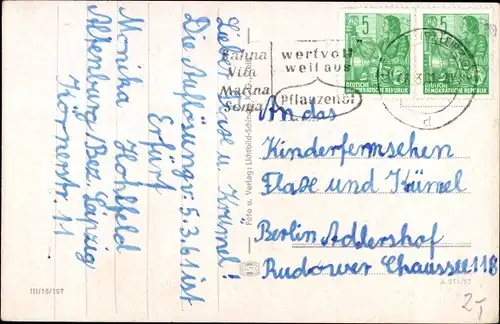 Lieber Flax u. Krümel!
Die Auflösung v. 5.3.61 ist
Erfurt
Monika Hohlfeld
Altenburg/Bez. Leipzig
Körnerstr. 11
Foto u. Verlag: Lichtbild-
III/18/197
Sahna
Vita
Marina
Sonja
wertvoll
weil aus
Pflanzenöl
5
DEUTSCHE
DEMOKRATISCHE REPUBLIK
5
DEUTSCHE
DEMOKRATISCHE REPUBLIK
d
An das
Kinderfernsehen
Flax und Krümel
Berlin Adlershof
Rudower Chaussee 118
2,-